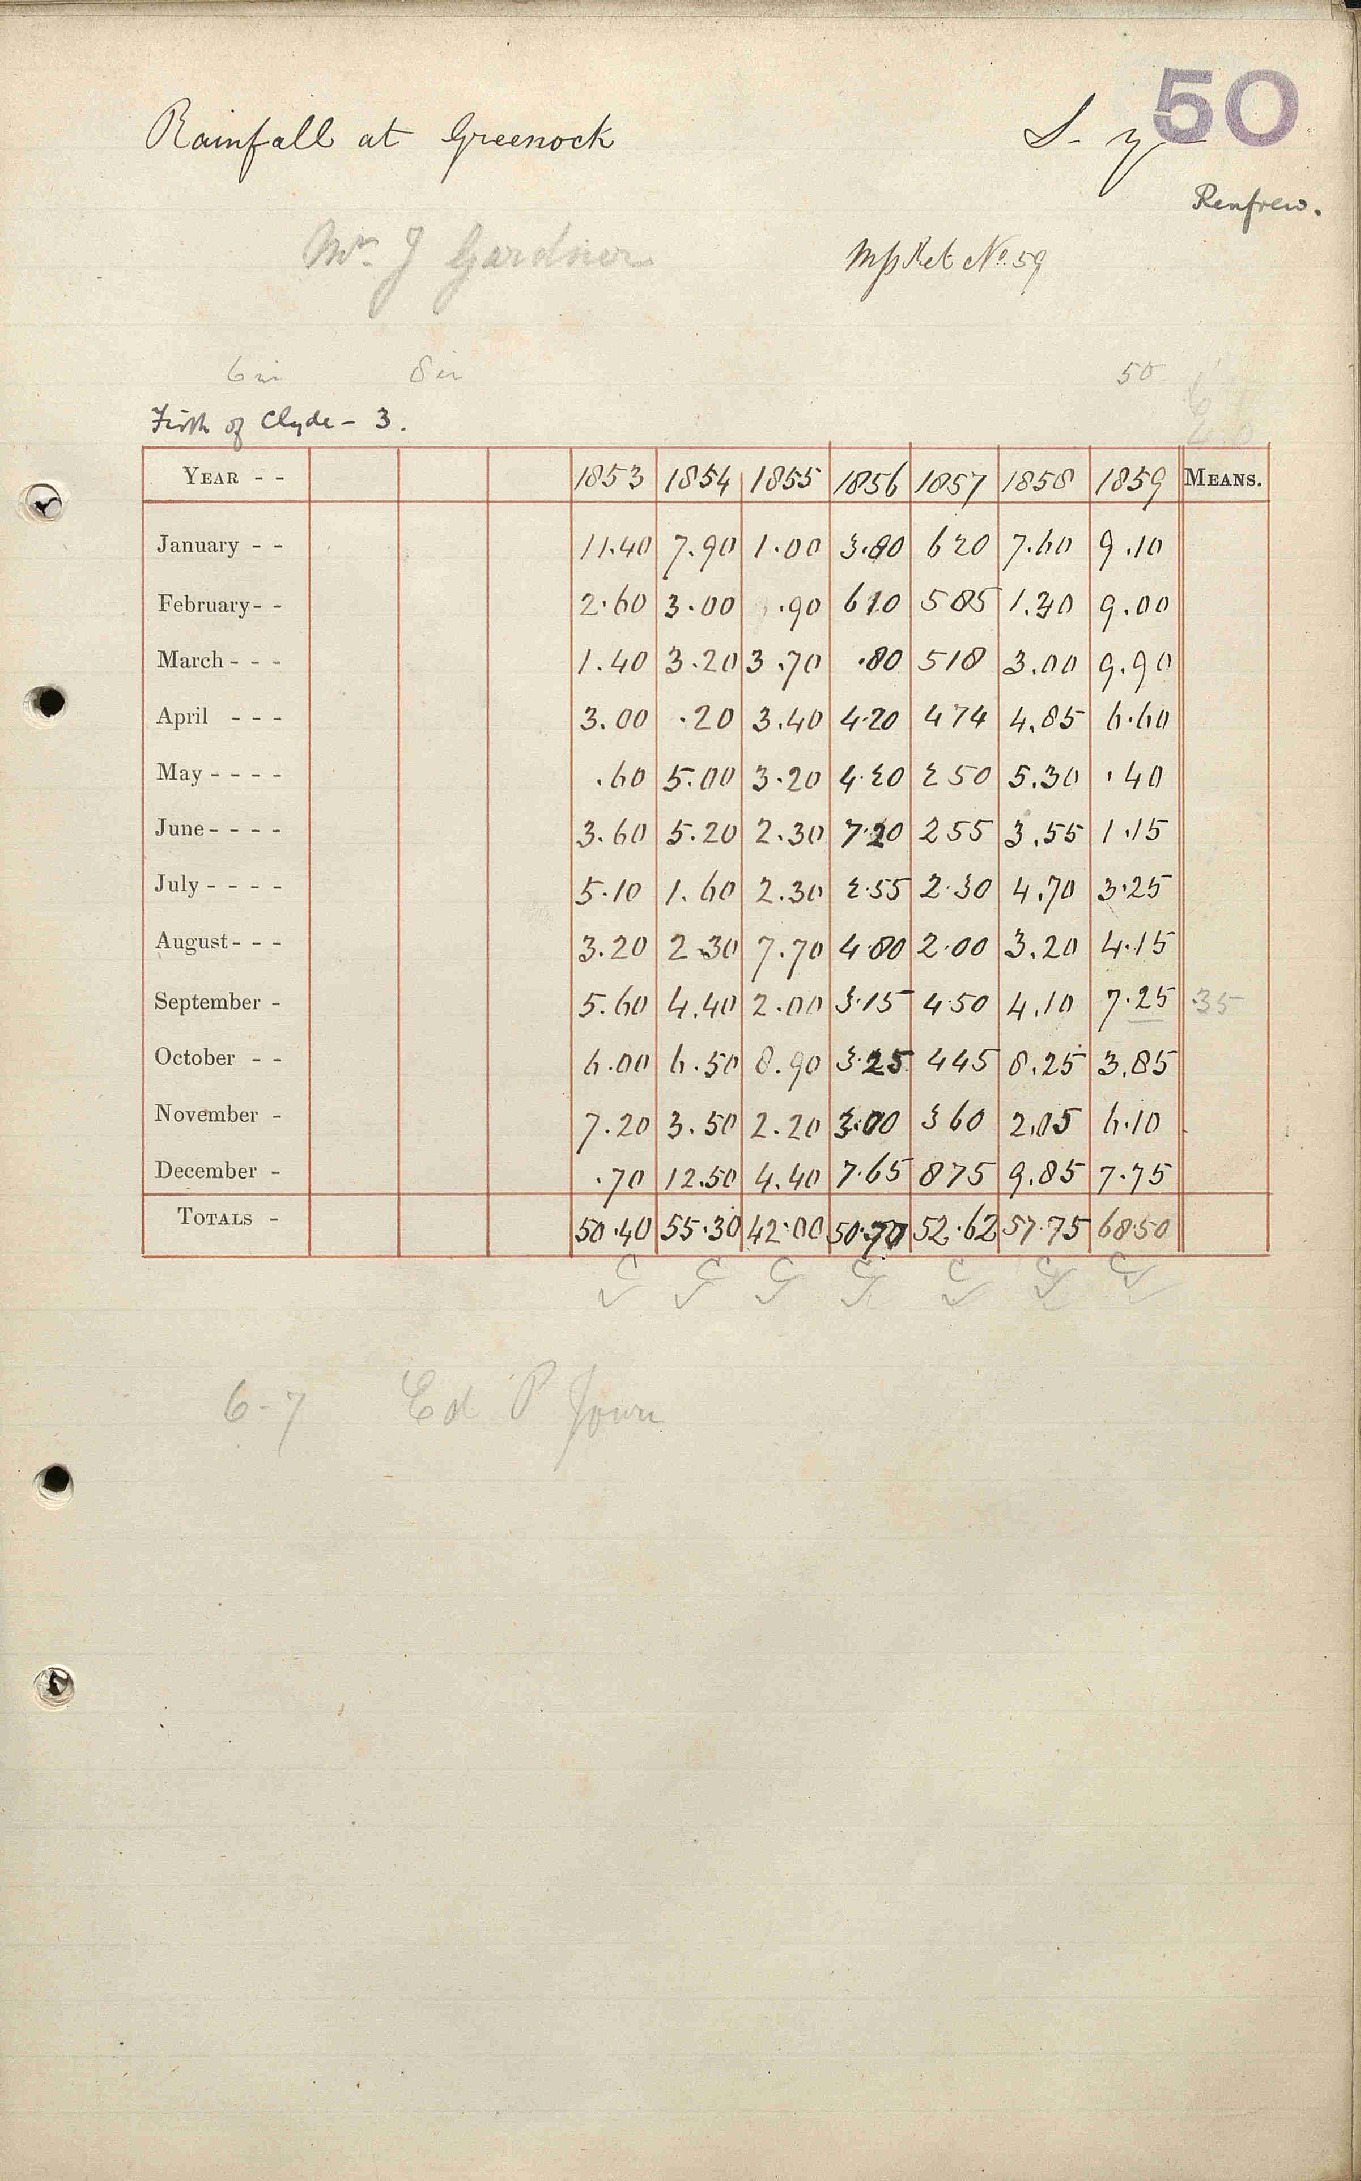 50
Rainfall at Greenock
Renfrew.
Mr. J Gardner
Mss Ret No. 59
6 in 8 in 50
Firth of Clyde - 3.
YEAR - - 1853 1854 1855 1856 1857 1858 1859 MEANS.
January - - 11.40 7.90 1.00 3.80 620 7.60 9.10
February - - 2.60 3.00 .90 610 585 1.30 9.00
March - - - 1.40 3.20 3.70 .80 518 3.00 9.90
April - - - 3.00 .20 3.40 4.20 474 4.85 6.60
May - - - - .60 5.00 3.20 4.20 250 5.30 .40
June - - - - 3.60 5.20 2.30 7.20 255 3.55 1.15
July - - - - 5.10 1.60 2.30 2.55 2.30 4.70 3.25
August - - - 3.20 2.30 7.70 4.80 2.00 3.20 4.15
September - 5.60 4.40 2.00 3.15 4.50 4.10 7.25 .35
October - - 6.00 6.50 8.90 3.25 445 8.25 3.85
November - 7.20 3.50 2.20 3.00 360 2.05 6.10
December - .70 12.50 4.40 7.65 875 9.85 7.75
TOTALS - 50.40 55.30 42.00 50.70 52.62 57.75 68.50
6-7 Ed P